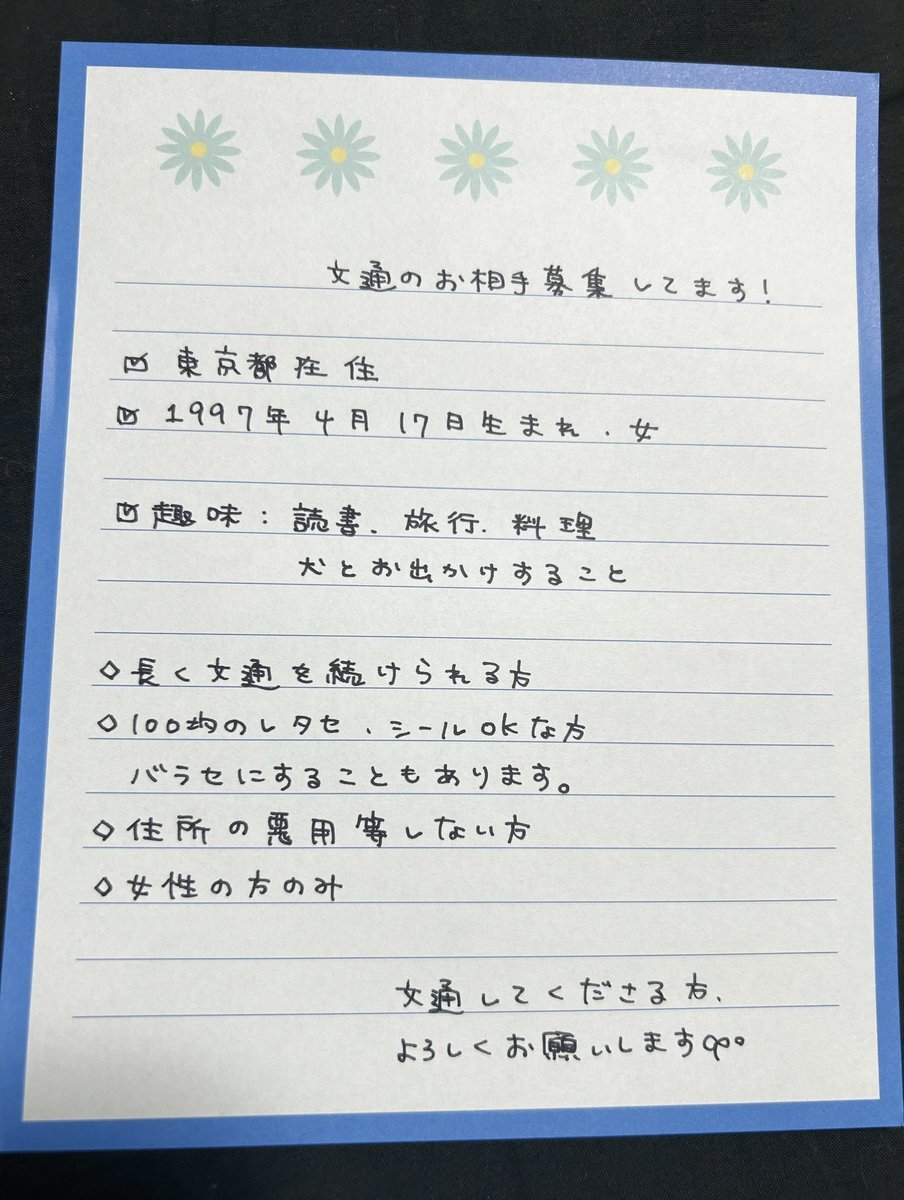 文通のお相手募集してます!
☑ 東京都在住
☑ 1997年4月17日生まれ、女
☑ 趣味:読書、旅行、料理
犬とお出かけすること
◇長く文通を続けられる方
◇100均のレタセ、シールOKな方
バラセにすることもあります。
◇住所の悪用等しない方
◇女性の方のみ
文通してくださる方、
よろしくお願いします